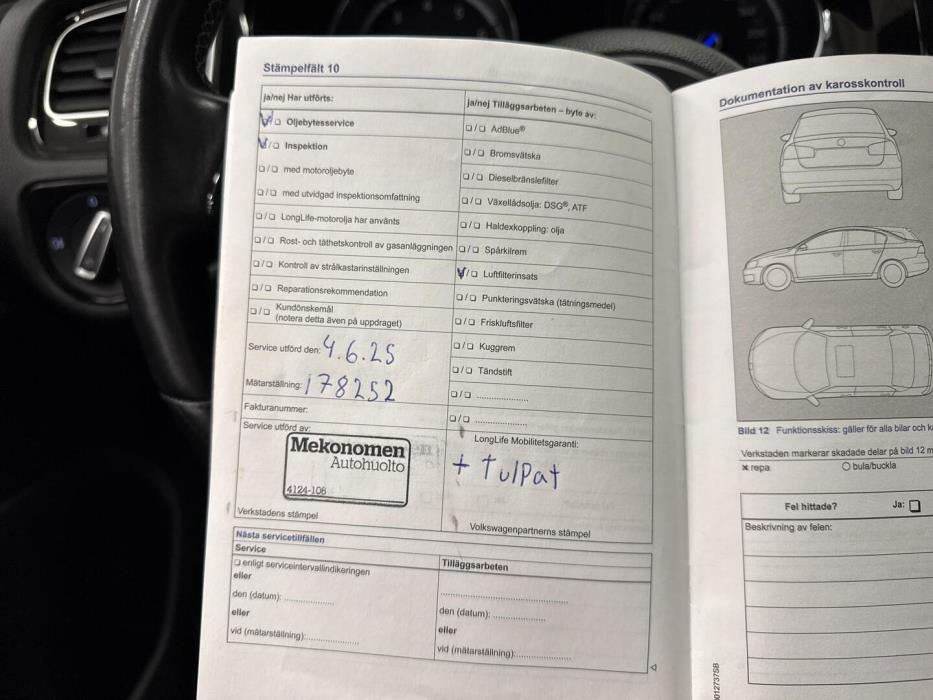 Stämpelfält 10
ja/nej Har utförts:
☑/☐ Oljebytesservice
☑/☐ Inspektion
☐/☐ med motoroljebyte
☐/☐ med utvidgad inspektionsomfattning
☐/☐ LongLife-motorolja har använts
☐/☐ Rost- och täthetskontroll av gasanläggningen
☐/☐ Kontroll av strålkastarinställningen
☐/☐ Reparationsrekommendation
☐/☐ Kundönskemål
(notera detta även på uppdraget)
Service utförd den: 4.6.25
Mätarställning: 178252
Fakturanummer:
Service utförd av:
Mekonomen
Autohuolto
4124-106
Verkstadens stämpel
ja/nej Tilläggsarbeten – byte av:
☐/☐ AdBlue®
☐/☐ Bromsvätska
☐/☐ Dieselbränslefilter
☐/☐ Växellådsolja: DSG®, ATF
☐/☐ Haldexkoppling: olja
☐/☐ Spårkilrem
☑/☐ Luftfilterinsats
☐/☐ Punkteringsvätska (tätningsmedel)
☐/☐ Friskluftsfilter
☐/☐ Kuggrem
☐/☐ Tändstift
☐/☐ ......................
☐/☐ ......................
LongLife Mobilitetsgaranti:
+ Tulpat
Volkswagenpartnerns stämpel
Nästa servicetillfällen
Service
☐ enligt serviceintervallindikeringen
eller
den (datum): ......................
eller
vid (mätarställning):......................
Tilläggsarbeten
......................................................
den (datum): ......................
eller
vid (mätarställning):......................
Dokumentation av karosskontroll
Bild 12 Funktionsskiss: gäller för alla bilar och
Verkstaden markerar skadade delar på bild 12 m
✖ repa
○ bula/buckla
Fel hittade?
Ja: ☐
Beskrivning av felen:
012737SB